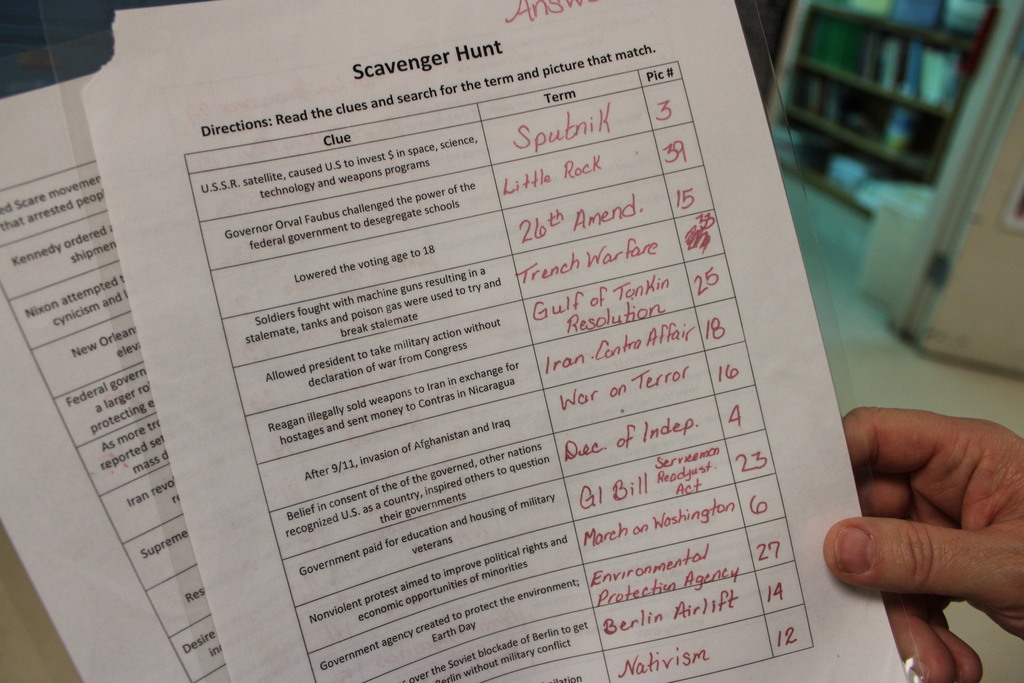 Scavenger Hunt
Directions: Read the clues and search for the term and picture that match.
Clue Term Pic #
U.S.S.R. satellite, caused U.S to invest $ in space, science,
technology and weapons programs
Sputnik 3
Governor Orval Faubus challenged the power of the
federal government to desegregate schools
Little Rock 39
Lowered the voting age to 18
26th Amend. 15
Soldiers fought with machine guns resulting in a
stalemate, tanks and poison gas were used to try and
break stalemate
Trench Warfare 38
Allowed president to take military action without
declaration of war from Congress
Gulf of Tonkin
Resolution 25
Reagan illegally sold weapons to Iran in exchange for
hostages and sent money to Contras in Nicaragua
Iran-Contra Affair 18
After 9/11, invasion of Afghanistan and Iraq
War on Terror 16
Belief in consent of the of the governed, other nations
recognized U.S. as a country, inspired others to question
their governments
Dec. of Indep. 4
Government paid for education and housing of military
veterans
GI Bill Serviceman
Readjust.
Act 23
Nonviolent protest aimed to improve political rights and
economic opportunities of minorities
March on Washington 6
Government agency created to protect the environment;
Earth Day
Environmental
Protection Agency 27
over the Soviet blockade of Berlin to get
Berlin without military conflict
Berlin Airlift 14
Nativism 12
ed Scare movemen
that arrested peop
Kennedy ordered
shipmen
Nixon attempted t
cynicism and
New Orlean
elev
Federal govern
a larger ro
protecting e
As more tr
reported se
mass d
Iran revo
Supreme
Res
Desire